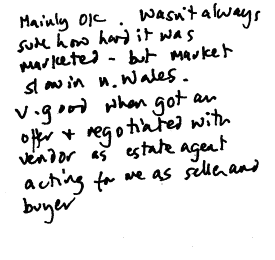 Mainly OK. Wasn't always
sure how hard it was
marketed - but market
slow in N. Wales.
V. good when got an
offer + negotiated with
vendor as estate agent
acting for me as seller and
buyer